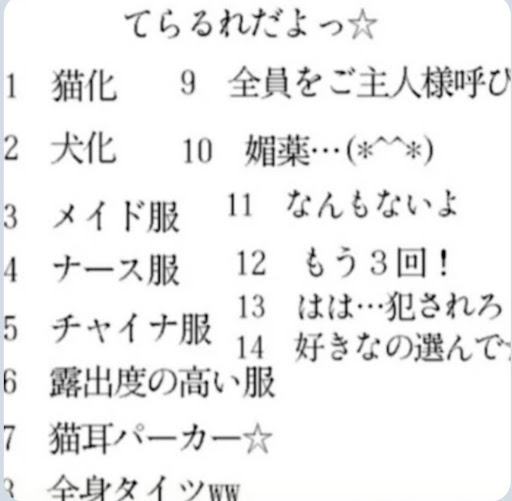 てらるれだよっ☆
1 猫化
2 犬化
3 メイド服
4 ナース服
5 チャイナ服
6 露出度の高い服
7 猫耳パーカー☆
全身タイツww
9 全員をご主人様呼び
10 媚薬…(*^^*)
11 なんもないよ
12 もう３回！
13 はは…犯されろ
14 好きなの選んで